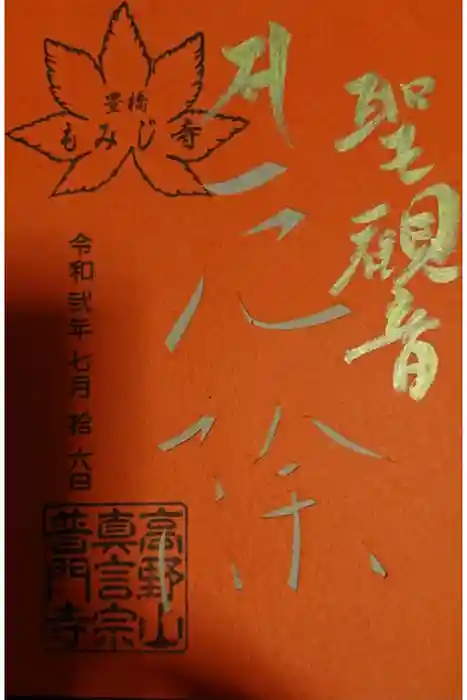 聖観音
厄除
豊橋
もみじ寺
令和弐年七月拾六日
高野山
真言宗
普門寺